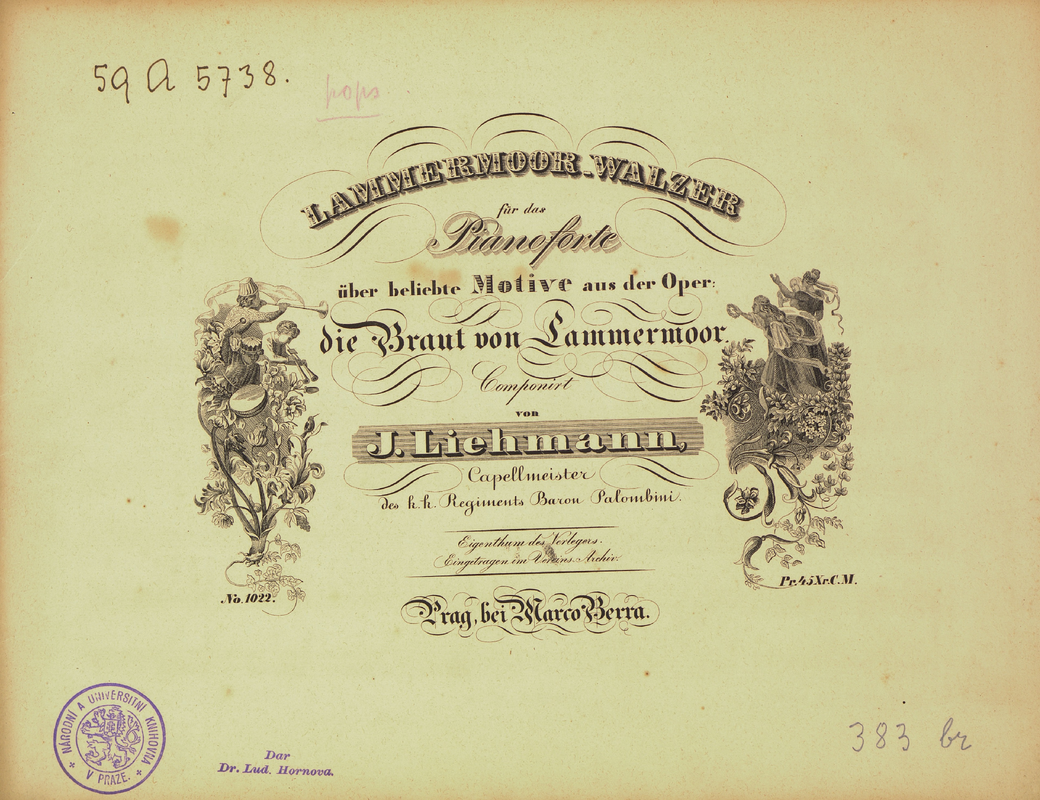 59 A 5738.
pops
LAMMERMOOR-WALZER
für das
Pianoforte
über beliebte Motive aus der Oper:
die Braut von Lammermoor.
Componirt
von
J. Liehmann,
Capellmeister
des k. k. Regiments Baron Palombini.
Eigenthum des Verlegers.
Eingetragen im Vereins-Archiv.
No. 1022.
Pr. 45 Xr. C. M.
Prag, bei Marco Berra.
NÁRODNÍ A UNIVERSITNÍ KNIHOVNA
V PRAZE.
Dar
Dr. Lud. Hornova.
383 br